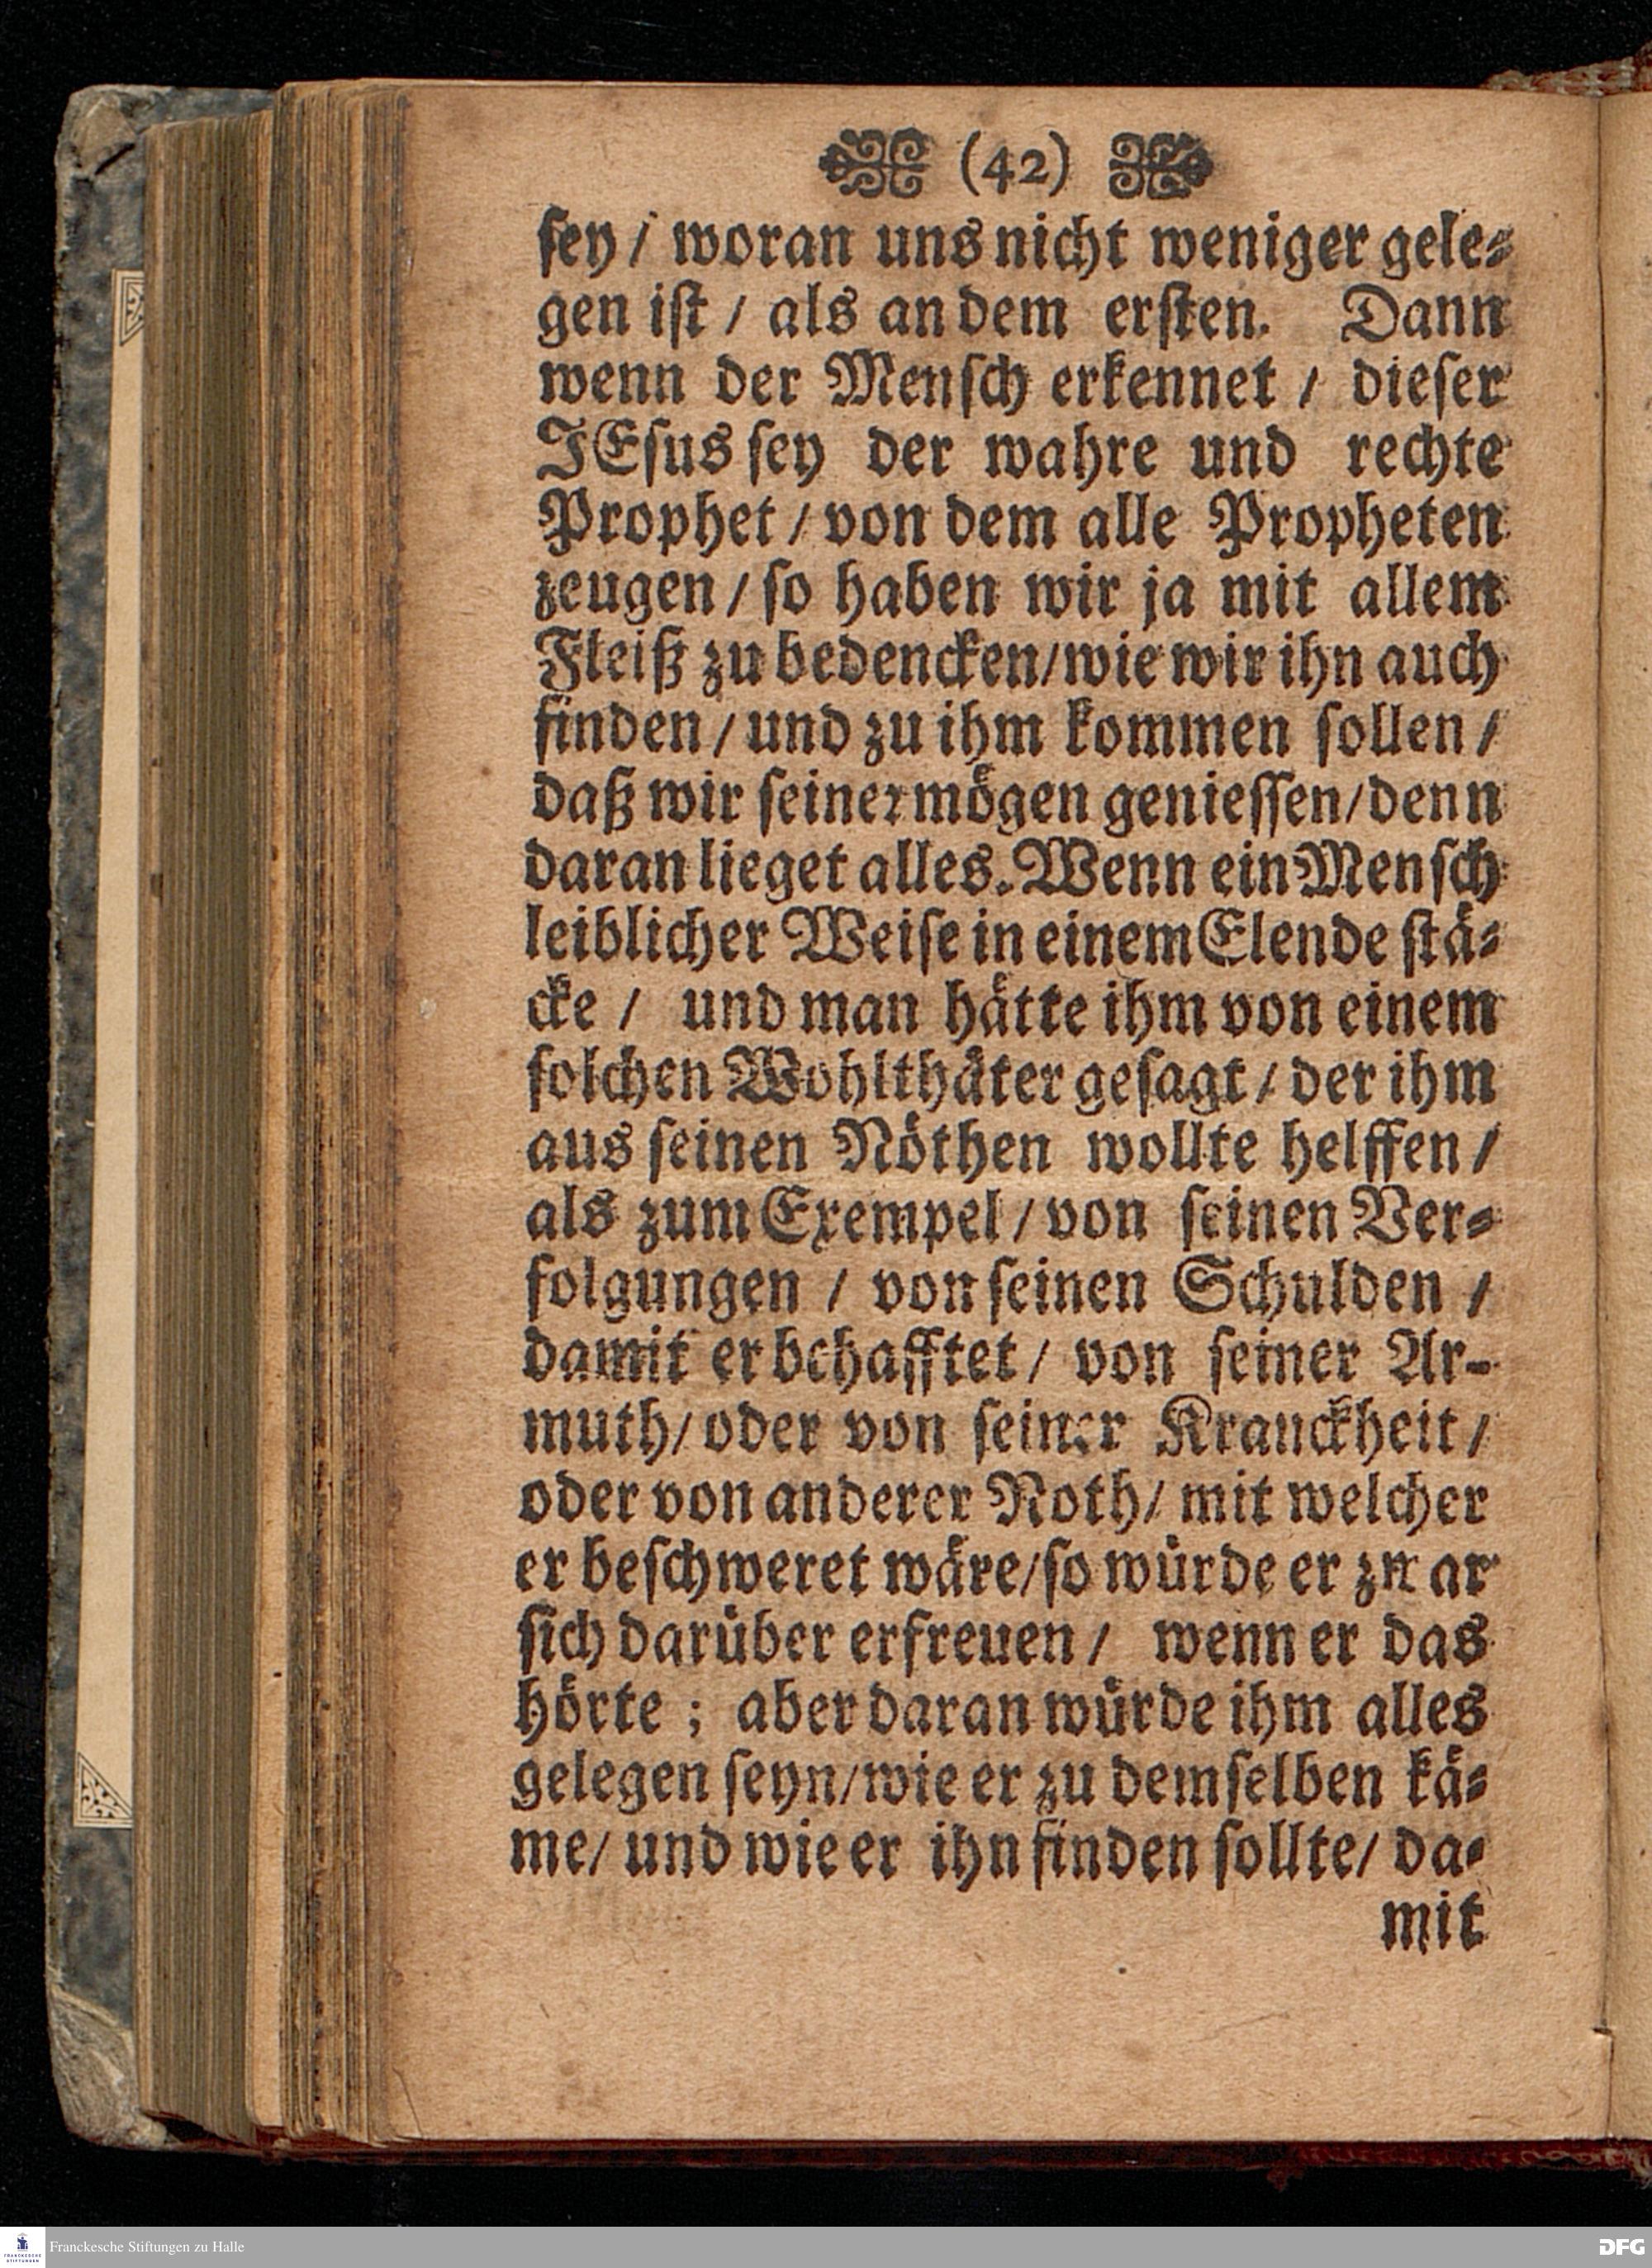 (42)
ſey / woran uns nicht weniger gele⸗
gen iſt / als an dem erſten. Dann
wenn der Menſch erkennet / dieſer
JEſus ſey der wahre und rechte
Prophet / von dem alle Propheten
zeugen / ſo haben wir ja mit allem
Fleiß zu bedencken / wie wir ihn auch
finden / und zu ihm kommen ſollen /
daß wir ſeiner mögen genieſſen / denn
daran lieget alles. Wenn ein Menſch
leiblicher Weiſe in einem Elende ſtä⸗
cke / und man hätte ihm von einem
ſolchen Wohlthäter geſagt / der ihm
aus ſeinen Nöthen wollte helffen /
als zum Exempel / von ſeinen Ver⸗
folgungen / von ſeinen Schulden /
damit er behafftet / von ſeiner Ar-
muth / oder von ſeiner Kranckheit /
oder von anderer Noth / mit welcher
er beſchweret wäre / ſo würde er zwar
ſich darüber erfreuen / wenn er das
hörte ; aber daran würde ihm alles
gelegen ſeyn / wie er zu demſelben kä⸗
me / und wie er ihn finden ſollte / da⸗
mit
Franckesche Stiftungen zu Halle
DFG